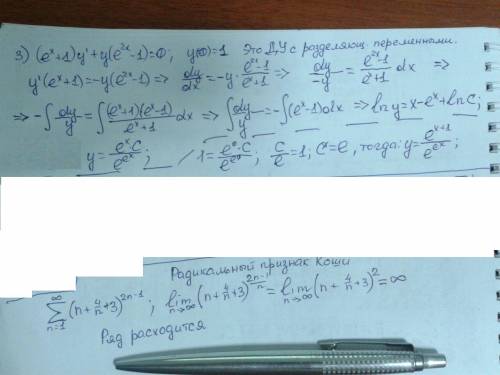 3) (eˣ+1)y' + y(e²ˣ-1)=0; y(0)=1 Это Д.У с разделяющ. переменными.
y'(eˣ+1)=-y(e²ˣ-1) => dy/dx = -y·(e²ˣ-1)/(eˣ+1) => dy/-y = (e²ˣ-1)/(eˣ+1) dx =>
=> -∫dy/y = ∫(eˣ+1)(eˣ-1)/(eˣ+1) dx => ∫dy/y = -∫(eˣ-1)dx => ln y = x-eˣ+ln C;
y = eˣ·C/e^(eˣ); 1 = e⁰·C/e^(e⁰); C/e = 1; C = e, тогда: y = e^(x+1)/e^(eˣ);
Радикальный признак Коши
∑_{n=1}^{∞} (n+4/n+3)^(2n-1); lim_{n→∞} (n+4/n+3)^((2n-1)/n) = lim_{n→∞} (n+4/n+3)² = ∞
Ряд расходится